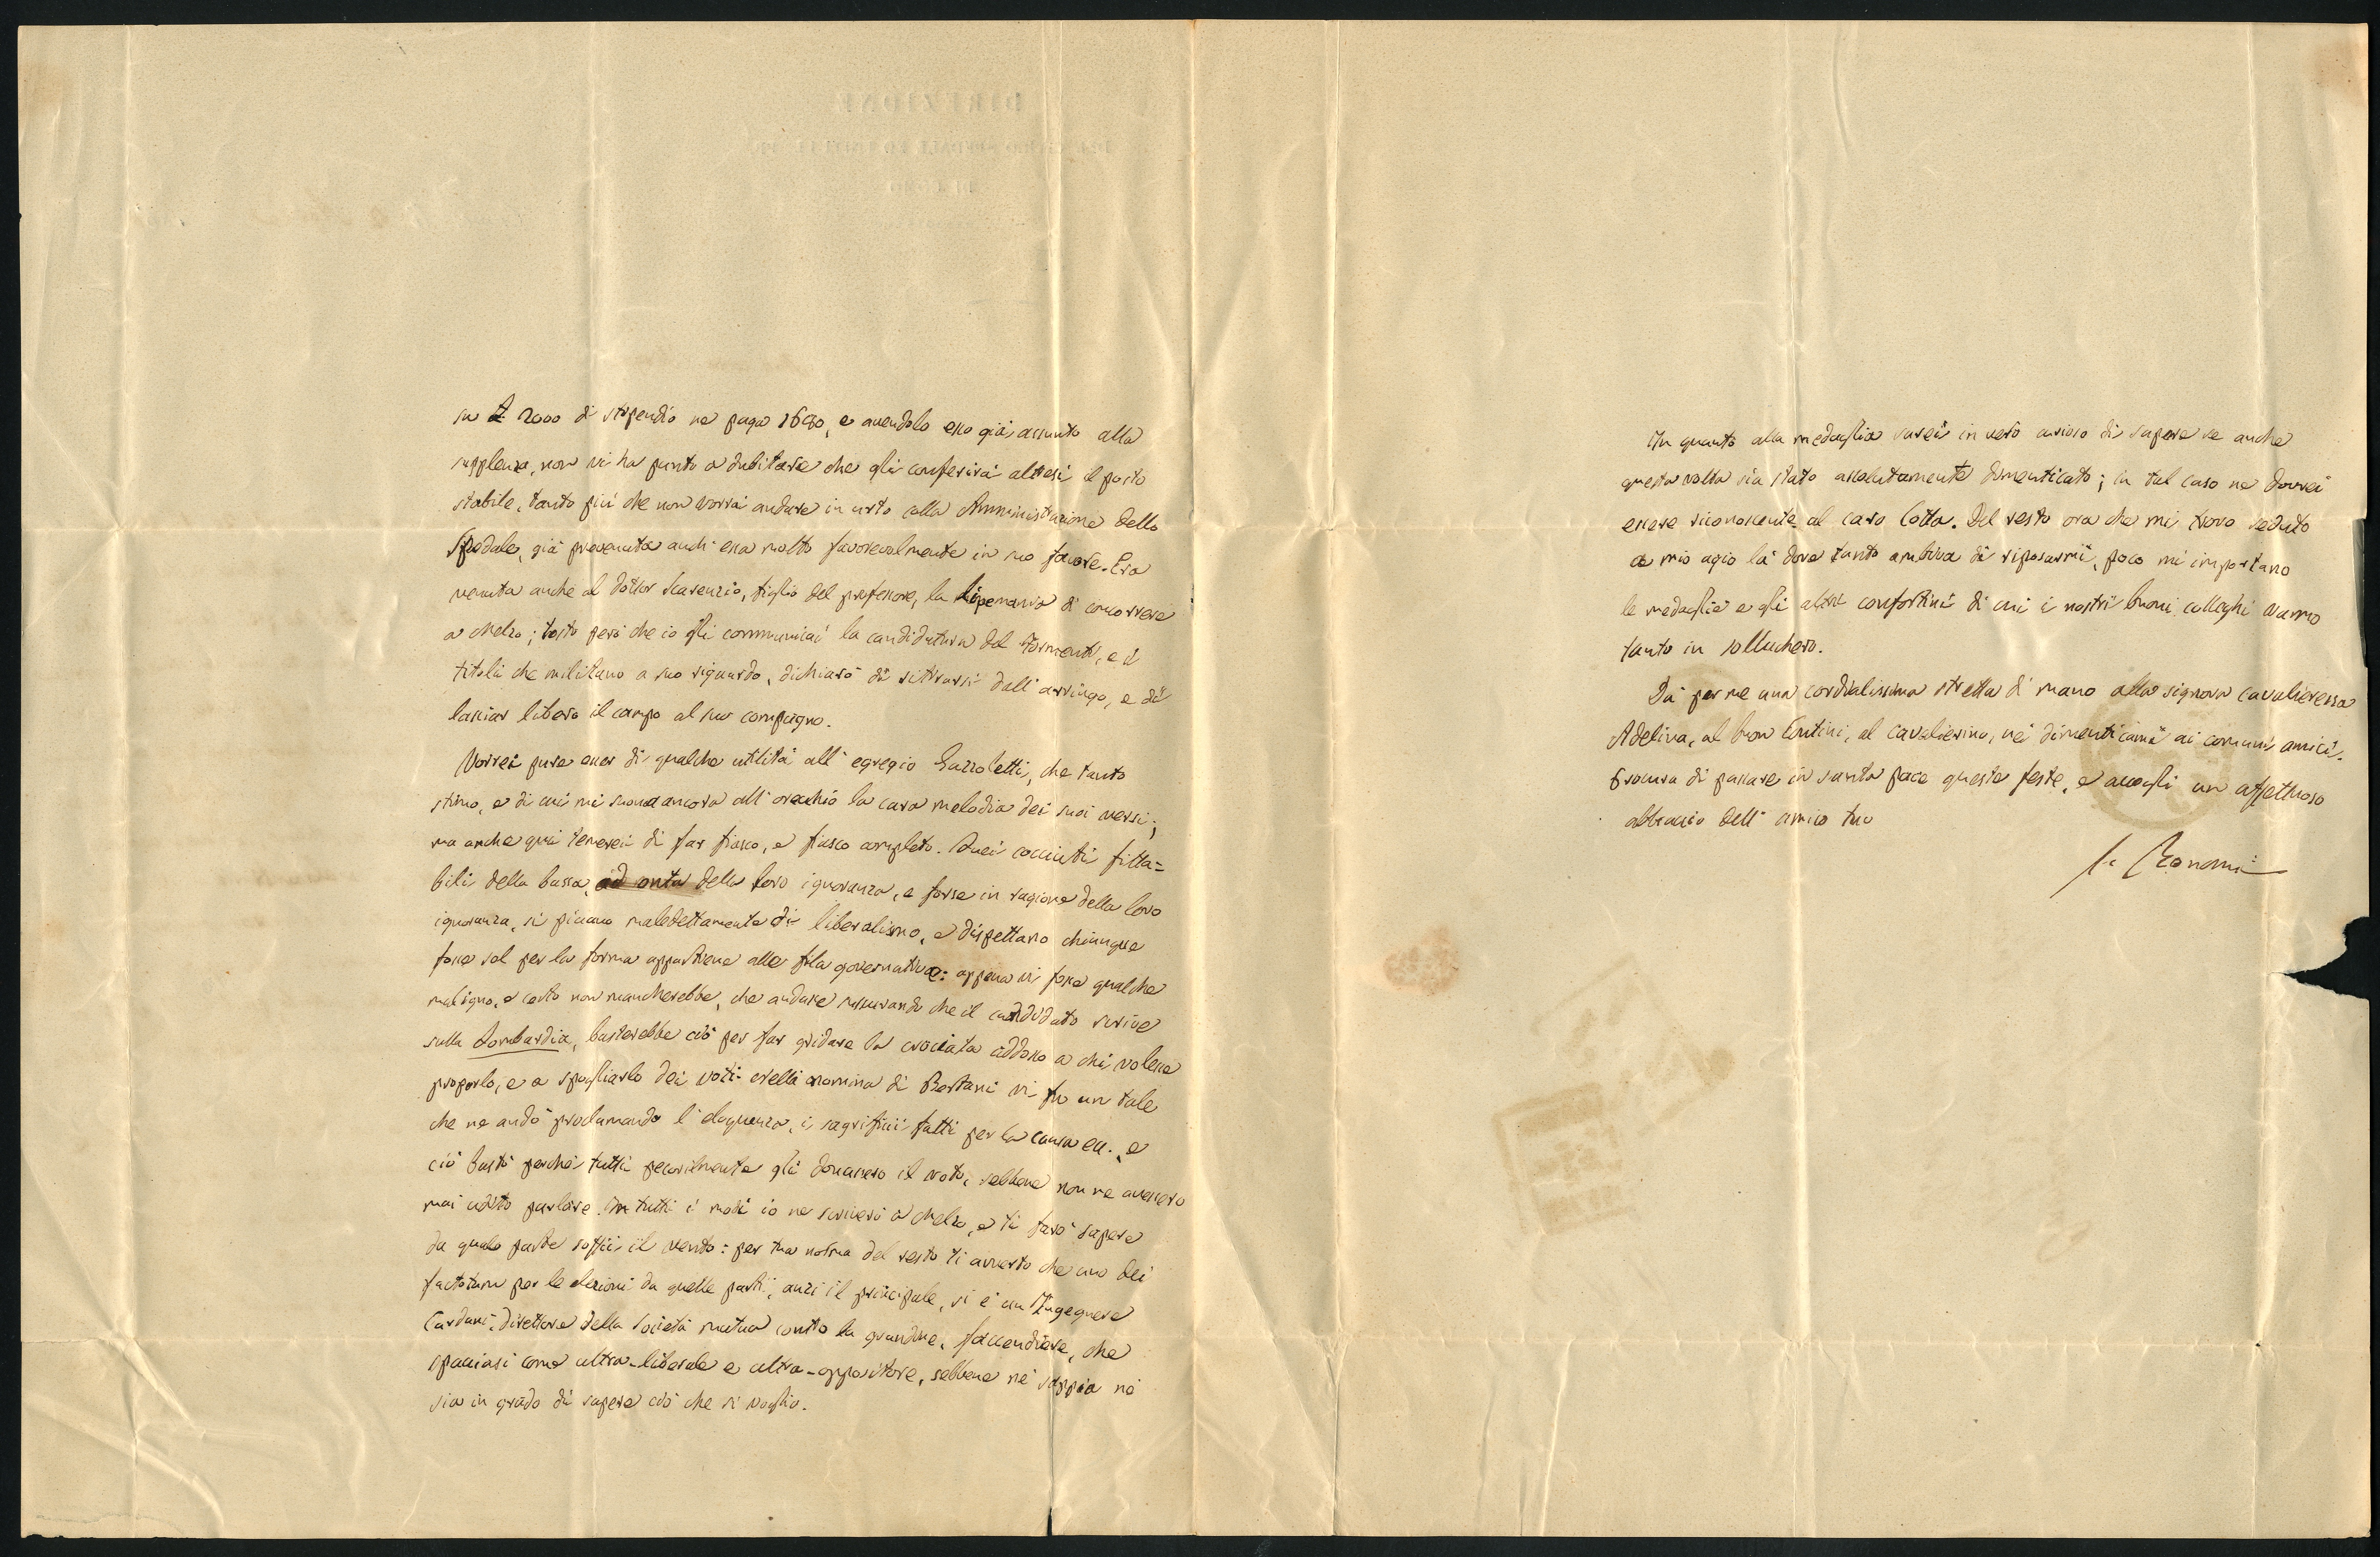 su £ 2000 di stipendio ne paga 1680, e avendolo esso già assunto alla
supplenza, non vi ha punto a dubitare che gli conferirà altresì il posto
stabile, tanto più che non vorrà andare in urto colla Amministrazione dello
Spedale, già prevenuta anch'essa molto favorevolmente in suo favore. Era
venuta anche al dottor Scarenzio, figlio del professore, la lipemania di concorrere
a Melzo; tosto però che io gli communicai la candidatura del Tormenti, e i
titoli che militano a suo riguardo, dichiarò di ritirarsi dall'arringo, e di
lasciar libero il campo al suo compagno.
Vorrei pure esser di qualche utilità all'egregio Gazzoletti, che tanto
stimo, e di cui mi suona ancora all'orecchio la cara melodia dei suoi versi;
ma anche qui temerei di far fiasco, e fiasco completo. Quei cocciuti fitta=
bili della bassa, ad onta della loro ignoranza, e forse in ragione della loro
ignoranza, si piccano maledettamente di liberalismo, e dispettano chiunque
fosse sol per la forma appartiene alle fila governative: appena vi fosse qualche
maligno, e certo non mancherebbe, che andasse susurrando che il candidato scrive
sulla Lombardia, basterebbe ciò per far gridare la crociata addosso a chi volesse
proporlo, e a spogliarlo dei voti. nella nomina di Bertani vi fu un tale
che ne andò proclamando l'eloquenza, i sagrificii fatti per la causa ecc. e
ciò bastò perchè tutti pecorilmente gli donassero il voto, sebbene non ne avessero
mai udito parlare. In tutti i modi io ne scriverò a Melzo, e ti farò sapere
da quale parte soffii il vento: per tua norma del resto ti avverto che uno dei
factotum per le elezioni da quelle parti, anzi il principale, si è un Ingegnere
Cardani, direttore della Società mutua contro la grandine, faccendiere, che
spacciasi come ultra-liberale e ultra-oppositore, sebbene nè sappia nè
sia in grado di sapere ciò che si voglia.
In quanto alla medaglia sarei in verò curioso di sapere se anche
questa volta sia stato assolutamente dimenticato; in tal caso ne dovrei
essere riconoscente al caro Cotta. Del resto ora che mi trovo seduto
a mio agio là dove tanto ambiva di riposarmi, poco mi importano
le medaglie e gli altri confortini di cui i nostri buoni colleghi vanno
tanto in sollucchero.
Dà per me una cordialissima stretta di mano alla signora cavalieressa
Adelina, al buon Contini, al cavalierino, nè dimenticami ai comuni amici.
Procura di passare in santa pace queste feste, e accogli un affettuoso
abbraccio dell'amico tuo
Bonomi